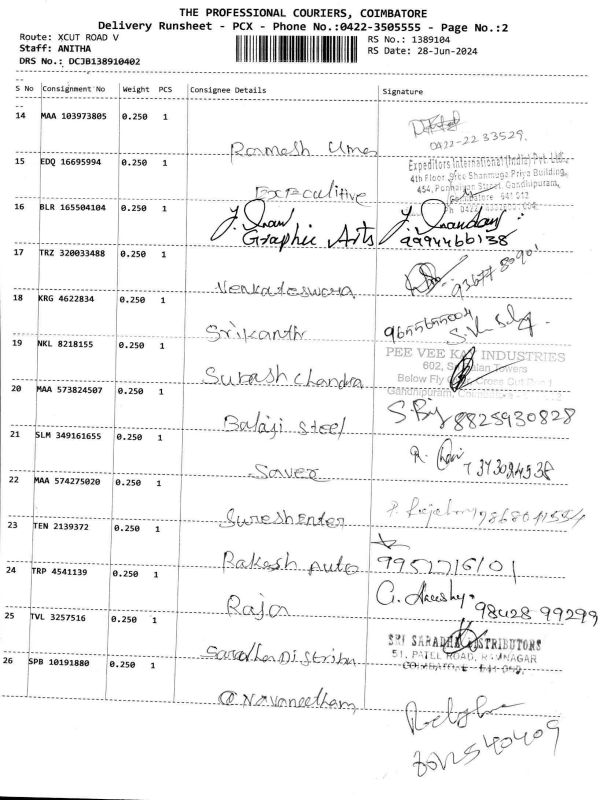 THE PROFESSIONAL COURIERS, COIMBATORE
Delivery Runsheet - PCX - Phone No.:0422-3505555 - Page No.:2
Route: XCUT ROAD V
RS No.: 1389104
Staff: ANITHA
RS Date: 28-Jun-2024
DRS No.: DCJB138910402
S No Consignment No Weight PCS Consignee Details Signature
14 MAA 103973805 0.250 1
Ramesh
0422-2233529
15 EDQ 16695994 0.250 1
Expeditors International (India) Pvt. Ltd.
4th Floor, Sree Shanmuga Priya Building,
454, Ponnaiyan Street, Gandhipuram,
Coimbatore 641 012
16 BLR 165504104 0.250 1
Graphic Arts 9994466138
17 TRZ 320033488 0.250 1
Venkateswara
18 KRG 4622834 0.250 1
Srikanth
19 NKL 8218155 0.250 1
PEE VEE INDUSTRIES
602, Towers
Below Fly Cross Cut
Gandhipuram,
Subash Chandra
20 MAA 573824507 0.250 1
Balaji Steel 8825930828
21 SLM 349161655 0.250 1
Saver
22 MAA 574275020 0.250 1
Suresh Enter
23 TEN 2139372 0.250 1
Rakesh Auto
24 TRP 4541139 0.250 1
Raja 98428 99299
25 TVL 3257516 0.250 1
SRI SARADHA DISTRIBUTORS
51, PATEL ROAD, RAMNAGAR
COIMBATORE - 641 009.
Saradha Distribu
26 SPB 10191880 0.250 1
Navaneetham